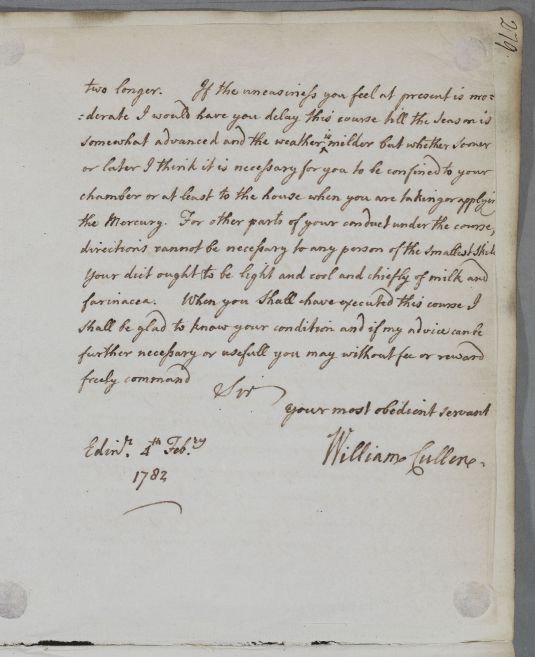 219
two longer. If the uneasiness you feel at present is mo=
=derate I would have you delay this course till the season is
somewhat advanced and the weather is milder but whether sooner
or later I think it is necessary for you to be confined to your
chamber or at least to the house when you are taking or applying
the Mercury. For other parts of your conduct under the course,
directions cannot be necessary to any person of the smallest Skill
Your diet ought to be light and cool and chiefly of milk and
farinacea. When you shall have executed this course I
shall be glad to know your condition and if my advice can be
further necessary or usefull you may without fee or reward
freely command
Sir
your most obedient servant
William Cullen.
Edinr. 4th Febry
1782